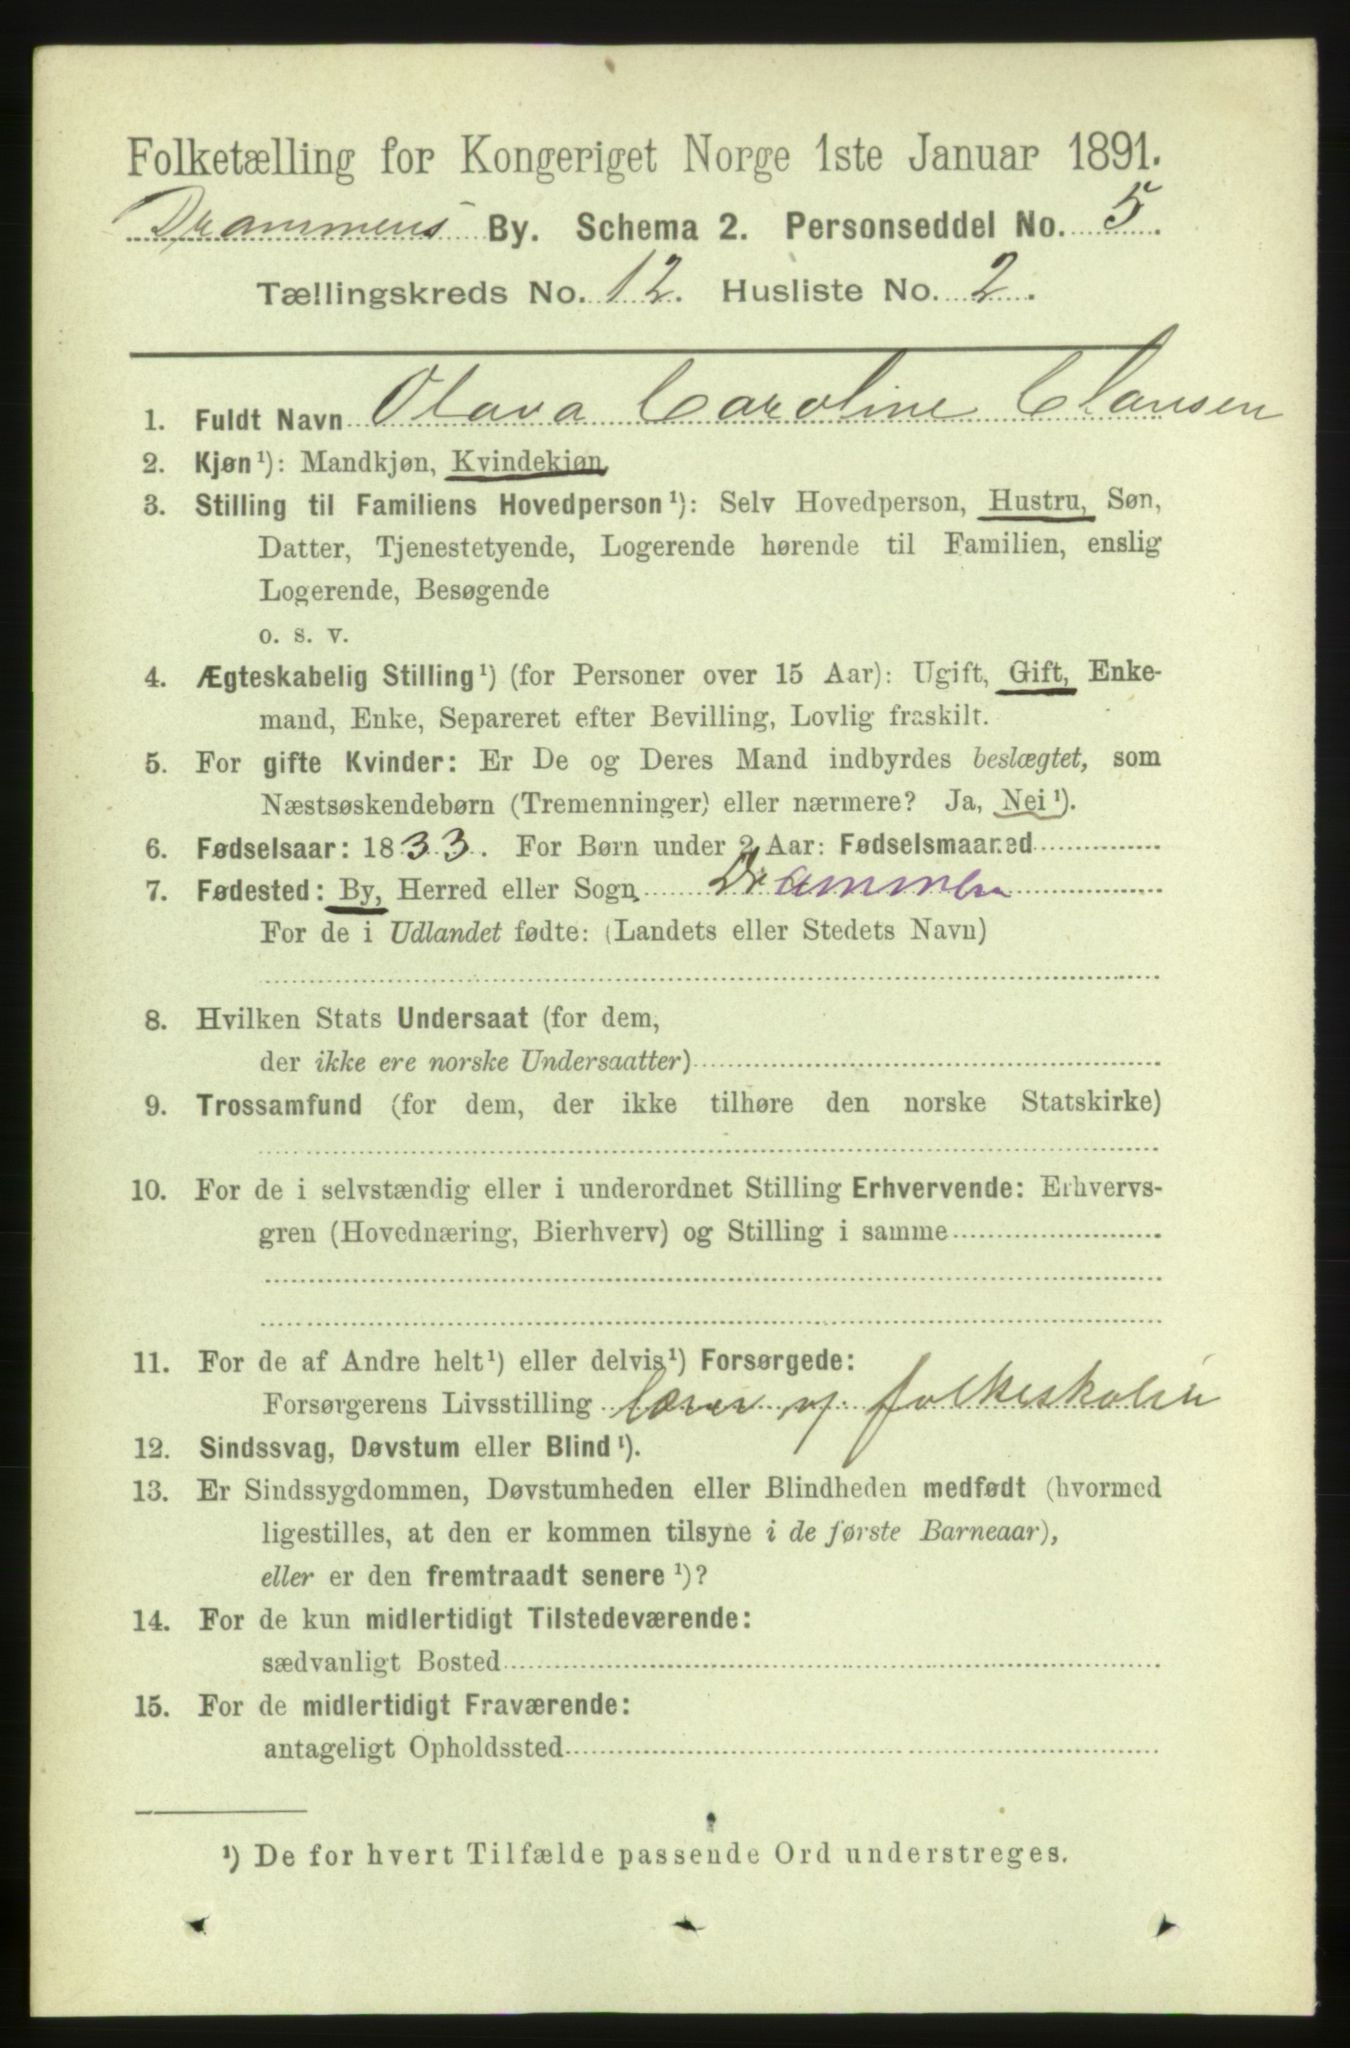 Folketælling for Kongeriget Norge 1ste Januar 1891.
Drammens By. Schema 2. Personseddel No. 5.
Tællingskreds No. 12. Husliste No. 2.
1. Fuldt Navn Olava Caroline Clausen
2. Kjøn¹): Mandkjøn, Kvindekjøn
3. Stilling til Familiens Hovedperson¹): Selv Hovedperson, Hustru, Søn,
Datter, Tjenestetyende, Logerende hørende til Familien, enslig
Logerende, Besøgende
o. s. v.
4. Ægteskabelig Stilling¹) (for Personer over 15 Aar): Ugift, Gift, Enke-
mand, Enke, Separeret efter Bevilling, Lovlig fraskilt.
5. For gifte Kvinder: Er De og Deres Mand indbyrdes beslægtet, som
Næstsøskendebørn (Tremenninger) eller nærmere? Ja, Nei¹).
6. Fødselsaar: 1833. For Børn under 2 Aar: Fødselsmaaned
7. Fødested: By, Herred eller Sogn Drammen
For de i Udlandet fødte: (Landets eller Stedets Navn)
8. Hvilken Stats Undersaat (for dem,
der ikke ere norske Undersaatter)
9. Trossamfund (for dem, der ikke tilhøre den norske Statskirke)
10. For de i selvstændig eller i underordnet Stilling Erhvervende: Erhvervs-
gren (Hovednæring, Bierhverv) og Stilling i samme
11. For de af Andre helt¹) eller delvis¹) Forsørgede:
Forsørgerens Livsstilling lærer v. folkeskolen
12. Sindssvag, Døvstum eller Blind¹).
13. Er Sindssygdommen, Døvstumheden eller Blindheden medfødt (hvormed
ligestilles, at den er kommen tilsyne i de første Barneaar),
eller er den fremtraadt senere¹)?
14. For de kun midlertidigt Tilstedeværende:
sædvanligt Bosted
15. For de midlertidigt Fraværende:
antageligt Opholdssted
¹) De for hvert Tilfælde passende Ord understreges.